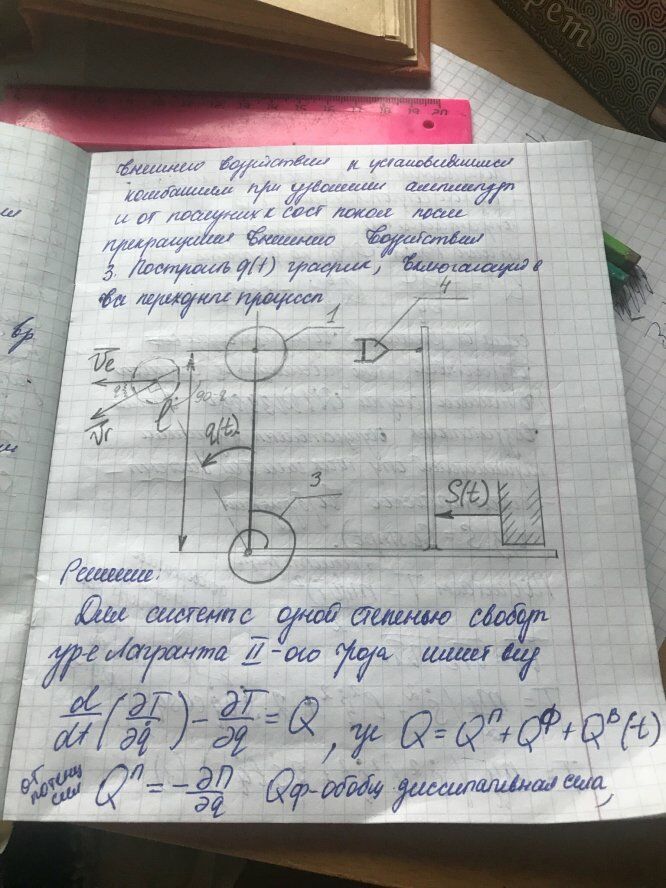 рет
внешнего воздействия к установившимся
колебаниям при удвоении амплитуды
и от последних к сост покоя после
прекращения внешнего воздействия
3. Построить q(t) график, включающий в
все переходные процессы
1
4
V̅e
V̅r
l
90-q
q(t)
3
S(t)
Решение:
Для системы с одной степенью свободы
ур-е Лагранжа II-ого рода имеет вид
d/dt(∂T/∂q̇) - ∂T/∂q = Q, где Q = Qᴨ + Qᶲ + Qᴮ(t)
от потенц сил Qᴨ = -∂П/∂q Qф-обобщ. диссипативная сила,